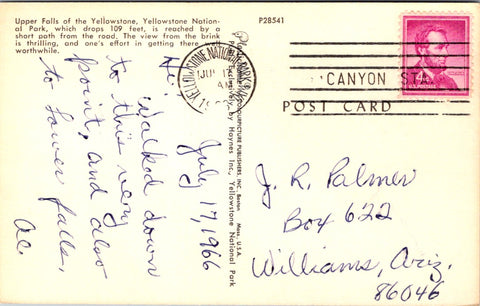 Upper Falls of the Yellowstone, Yellowstone Nation-
al Park, which drops 109 feet, is reached by a
short path from the road. The view from the brink
is thrilling, and one's effort in getting there well
worthwhile.
P28541
YELLOWSTONE NATIONAL PARK
JUL
AM
CANYON STA.
POST CARD
July 17, 1966
Walked down
to this very
point, and also
to lower falls.
Exclusively by Haynes Inc., Yellowstone National Park
COLOURPICTURE PUBLISHERS, INC. Boston, Mass. U.S.A.
J. R. Palmer
Box 622
Williams, Ariz.
86046